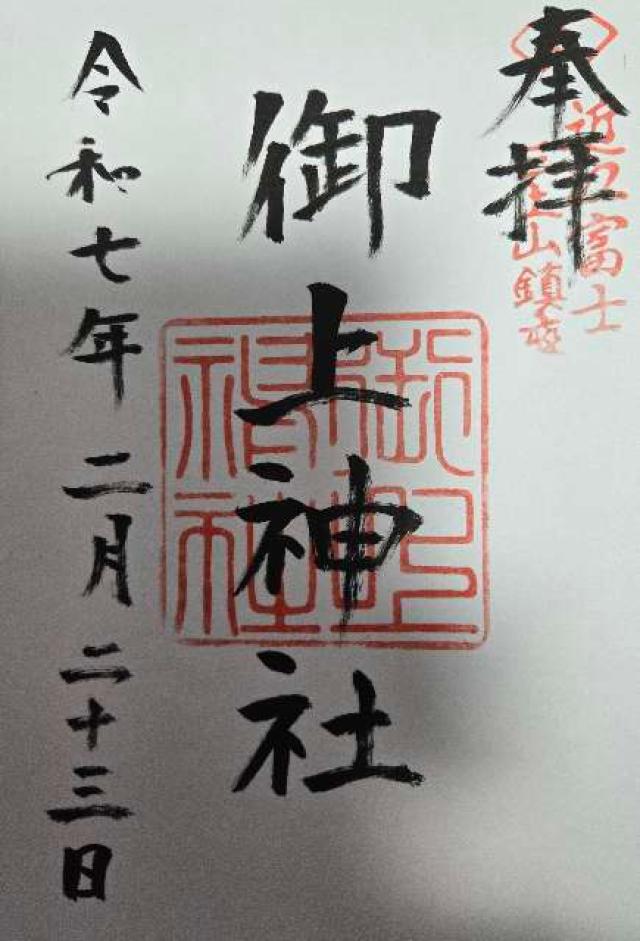 奉拝
近江富士
三上山鎮座
御上神社
御上神社
令和七年二月二十三日